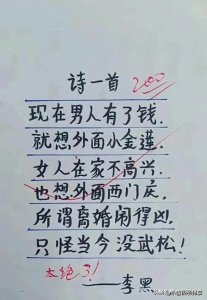 诗一首
200
现在男人有了钱，
就想外面小金莲，
女人在家不高兴，
也想外面西门庆，
所谓离婚闹得凶，
只怪当今没武松！
太绝了！
——李黑